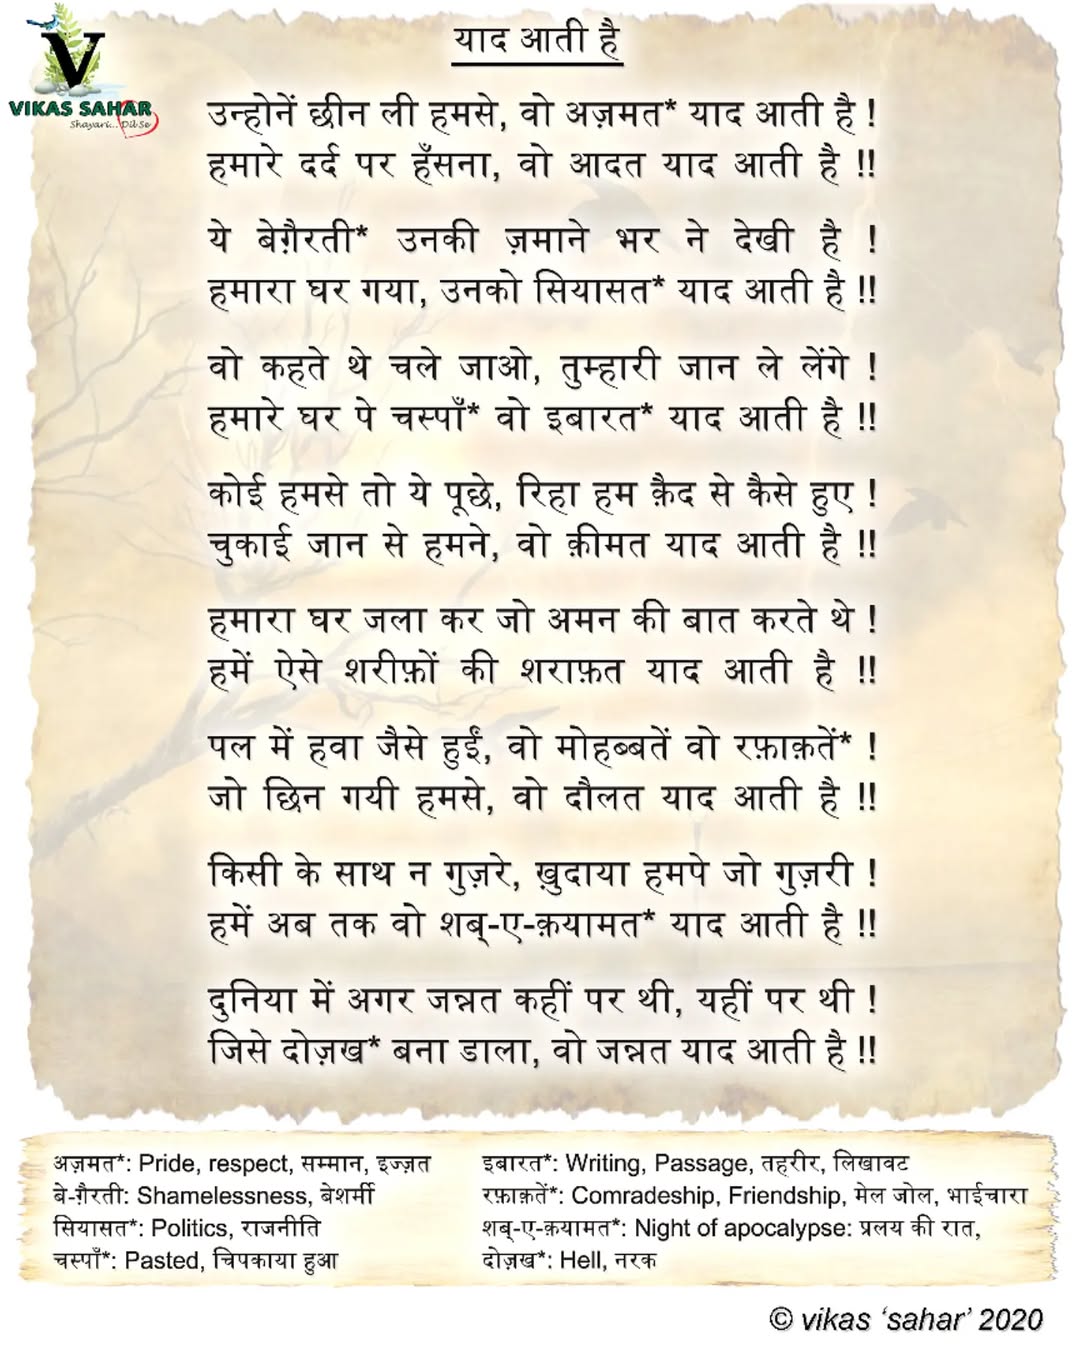 V
VIKAS SAHAR
Shayari... Dil Se
याद आती है
उन्होनें छीन ली हमसे, वो अज़मत* याद आती है !
हमारे दर्द पर हँसना, वो आदत याद आती है !!
ये बेग़ैरती* उनकी ज़माने भर ने देखी है !
हमारा घर गया, उनको सियासत* याद आती है !!
वो कहते थे चले जाओ, तुम्हारी जान ले लेंगे !
हमारे घर पे चस्पाँ* वो इबारत* याद आती है !!
कोई हमसे तो ये पूछे, रिहा हम क़ैद से कैसे हुए !
चुकाई जान से हमने, वो क़ीमत याद आती है !!
हमारा घर जला कर जो अमन की बात करते थे !
हमें ऐसे शरीफ़ों की शराफ़त याद आती है !!
पल में हवा जैसे हुईं, वो मोहब्बतें वो रफ़ाक़तें* !
जो छिन गयी हमसे, वो दौलत याद आती है !!
किसी के साथ न गुज़रे, ख़ुदाया हमपे जो गुज़री !
हमें अब तक वो शब्-ए-क़यामत* याद आती है !!
दुनिया में अगर जन्नत कहीं पर थी, यहीं पर थी !
जिसे दोज़ख* बना डाला, वो जन्नत याद आती है !!
अज़मत*: Pride, respect, सम्मान, इज्ज़त
बे-ग़ैरती: Shamelessness, बेशर्मी
सियासत*: Politics, राजनीति
चस्पाँ*: Pasted, चिपकाया हुआ
इबारत*: Writing, Passage, तहरीर, लिखावट
रफ़ाक़तें*: Comradeship, Friendship, मेल जोल, भाईचारा
शब्-ए-क़यामत*: Night of apocalypse: प्रलय की रात,
दोज़ख*: Hell, नरक
© vikas ‘sahar’ 2020